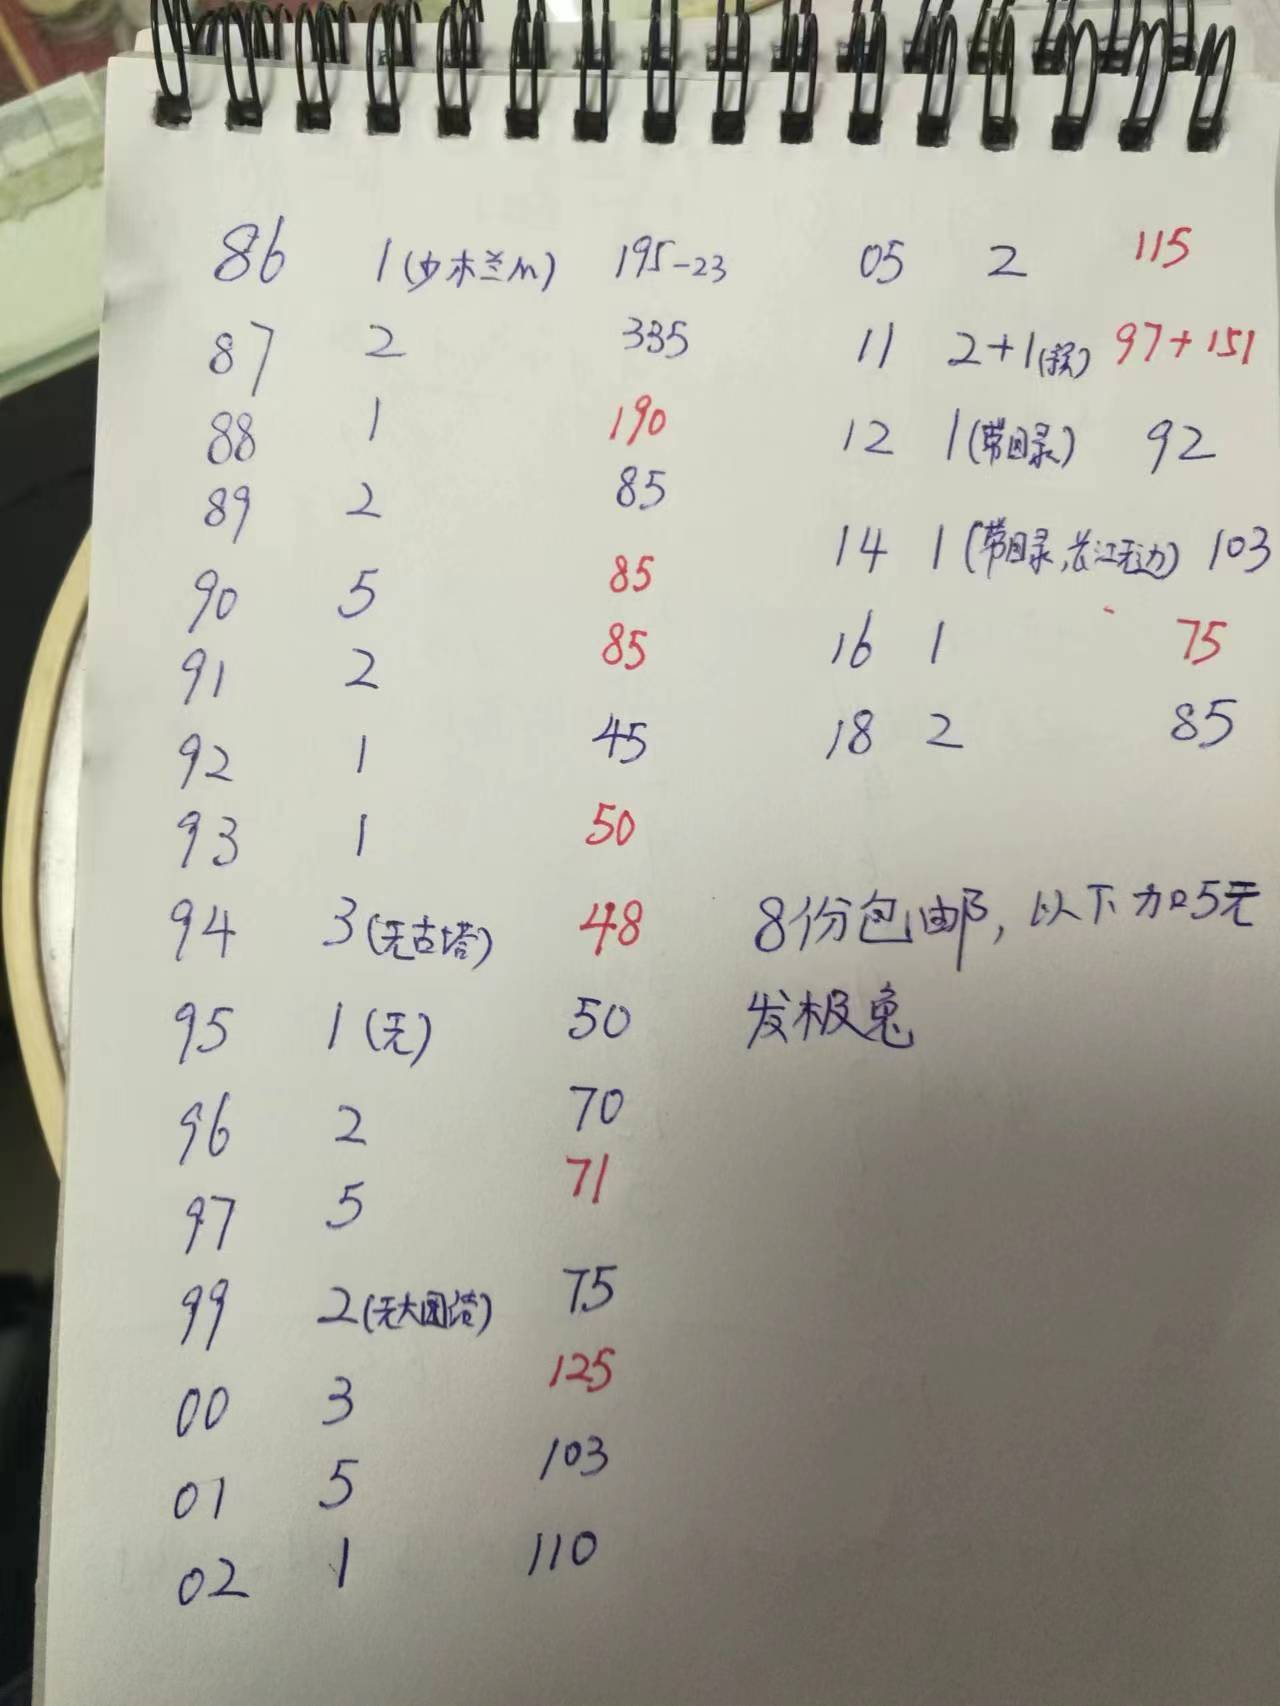 86 1(少木兰m) 195-23
87 2 335
88 1 190
89 2 85
90 5 85
91 2 85
92 1 45
93 1 50
94 3(无古塔) 48
95 1(无) 50
96 2 70
97 5 71
99 2(无大团结) 75
00 3 125
01 5 103
02 1 110
05 2 115
11 2+1 97+151
12 1(带目录) 92
14 1(带目录,长江无边) 103
16 1 75
18 2 85
8份包邮,以下加5元
发极兔